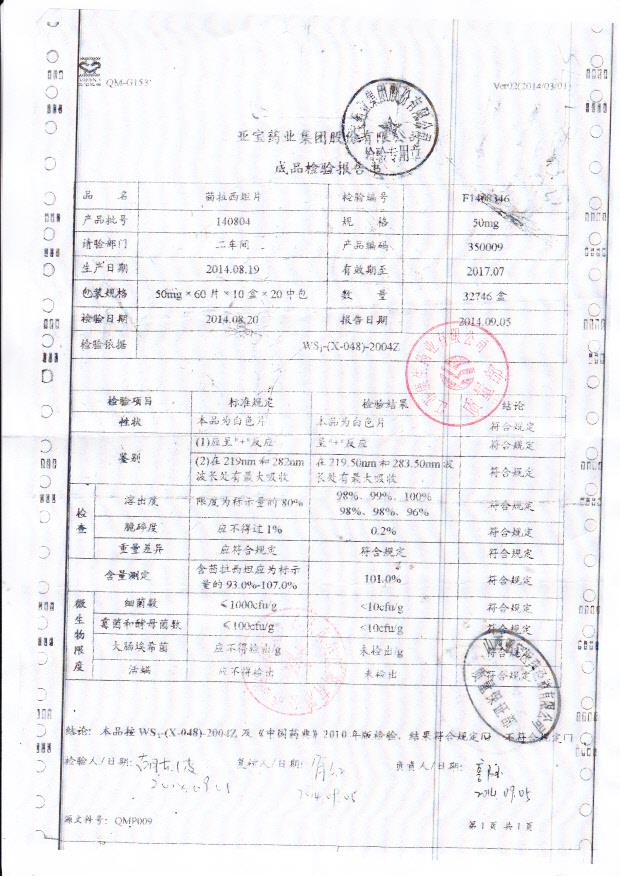 QM-G153
Ver02(2014/03/01)
亚宝药业集团股份有限公司
成品检验报告书
检验专用章
品 名 茴拉西坦片 检验编号 F1408346
产品批号 140804 规 格 50mg
请验部门 二车间 产品编码 350009
生产日期 2014.08.19 有效期至 2017.07
包装规格 50mg×60片×10盒×20中包 数 量 32746盒
检验日期 2014.08.20 报告日期 2014.09.05
检验依据 WS₁-(X-048)-2004Z
检验项目 标准规定 检验结果 结论
性状 本品为白色片 本品为白色片 符合规定
鉴别 (1)应呈"+"反应 呈"+"反应 符合规定
(2)在219nm和282nm波长处有最大吸收 在219.50nm和283.50nm波长处有最大吸收 符合规定
检查
溶出度 限度为标示量的80% 98%、99%、100% 98%、98%、96% 符合规定
脆碎度 应不得过1% 0.2% 符合规定
重量差异 应符合规定 符合规定 符合规定
含量测定 含茴拉西坦应为标示量的93.0%-107.0% 101.0% 符合规定
微生物限度
细菌数 ≤1000cfu/g <10cfu/g 符合规定
霉菌和酵母菌数 ≤100cfu/g <10cfu/g 符合规定
大肠埃希菌 应不得检出/g 未检出/g 符合规定
活螨 应不得检出 未检出 符合规定
结论：本品按WS₁-(X-048)-2004Z及《中国药典》2010年版检验，结果符合规定☐ 不符合规定☐
检验人/日期： 复核人/日期： 负责人/日期：
2014.09.05 2014.09.05
源文件号：QMP009 第1页 共1页